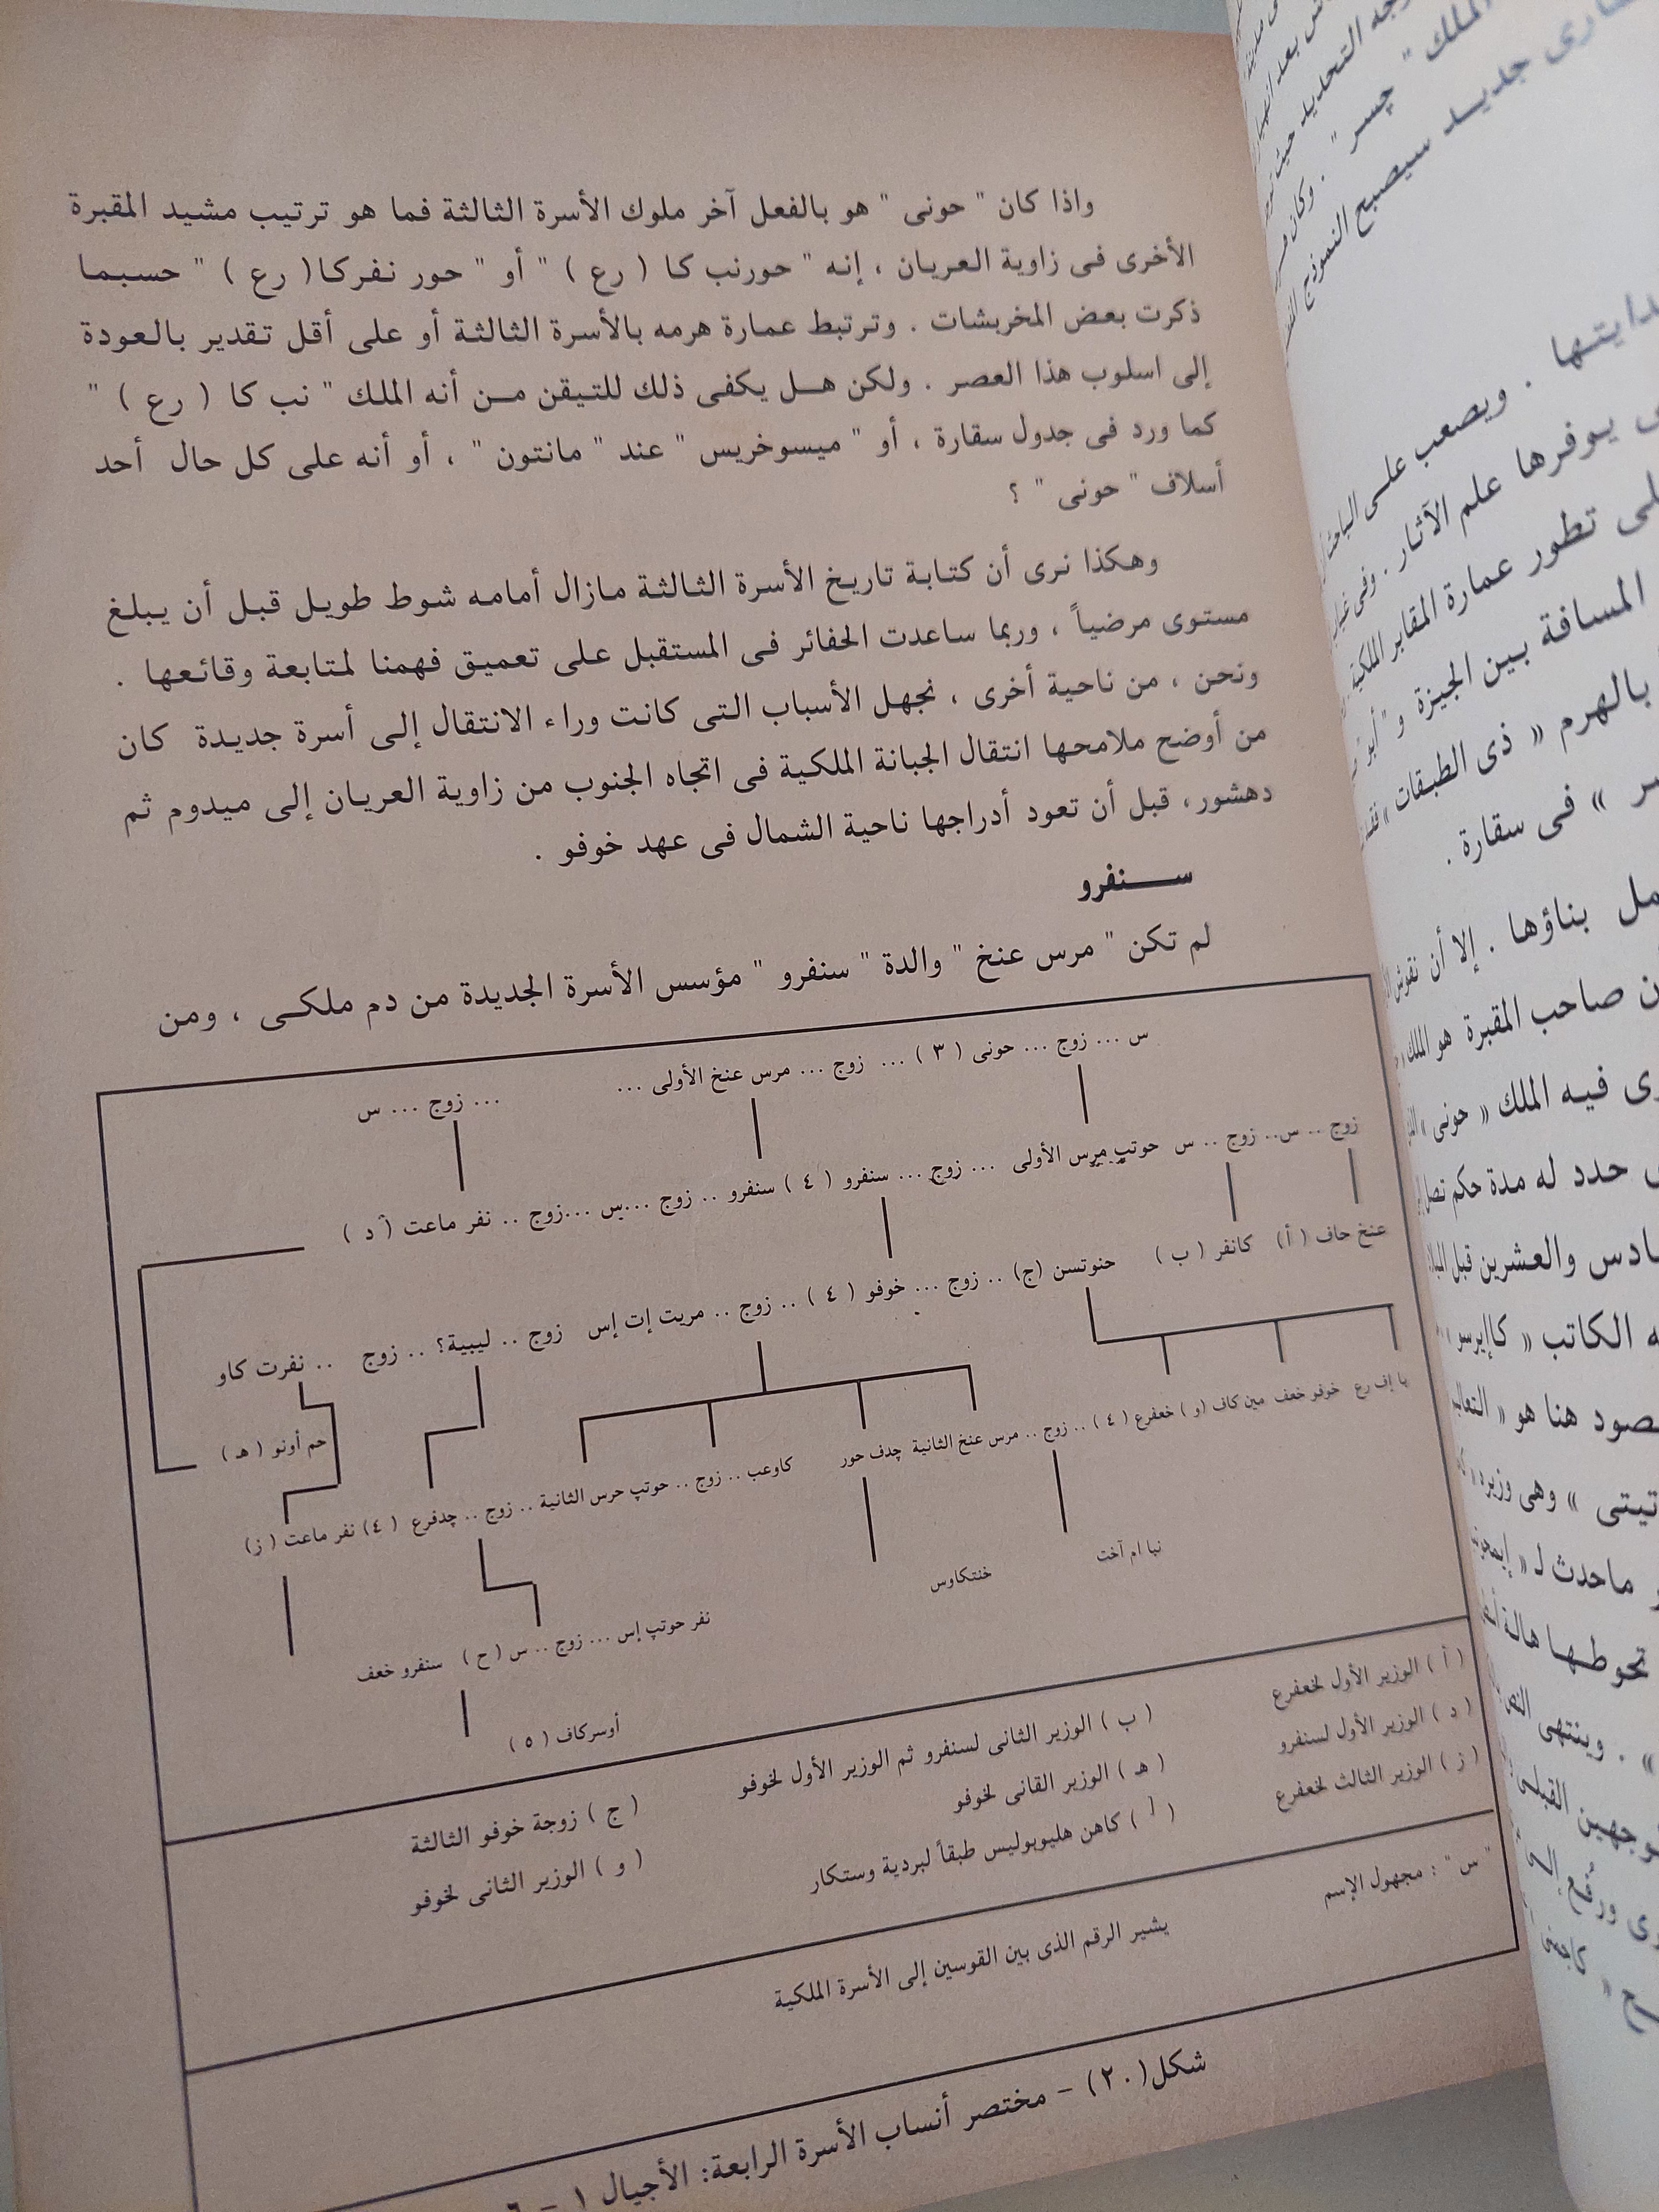 واذا كان " حونى " هو بالفعل آخر ملوك الأسرة الثالثة فما هو ترتيب مشيد المقبرة
الأخرى فى زاوية العريان ، إنه " حورنب كا ( رع ) " أو " حور نفركا ( رع ) " حسبما
ذكرت بعض المخربشات . وترتبط عمارة هرمه بالأسرة الثالثة أو على أقل تقدير بالعودة
إلى اسلوب هذا العصر . ولكن هل يكفى ذلك للتيقن من أنه الملك " نب كا ( رع ) "
كما ورد فى جدول سقارة ، أو " ميسوخريس " عند " مانتون " ، أو أنه على كل حال أحد
أسلاف " حونى " ؟
وهكذا نرى أن كتابة تاريخ الأسرة الثالثة مازال أمامه شوط طويل قبل أن يبلغ
مستوى مرضياً ، وربما ساعدت الحفائر فى المستقبل على تعميق فهمنا لمتابعة وقائعها .
ونحن ، من ناحية أخرى ، نجهل الأسباب التى كانت وراء الانتقال إلى أسرة جديدة كان
من أوضح ملامحها انتقال الجبانة الملكية فى اتجاه الجنوب من زاوية العريان إلى ميدوم ثم
دهشور، قبل أن تعود أدراجها ناحية الشمال فى عهد خوفو .
سنفرو
لم تكن " مرس عنخ " والدة " سنفرو " مؤسس الأسرة الجديدة من دم ملكى ، ومن
س ... زوج ... حونى ( ٣ ) ... زوج ... مرس عنخ الأولى ...
... زوج ... س
زوج .. س.. زوج .. س حوتب مرس الأولى ... زوج ... سنفرو ( ٤ ) سنفرو .. زوج ...س ...زوج .. نفر ماعت ( د )
عنخ حاف ( أ ) كانفر ( ب ) حنوتسن (ج) .. زوج ... خوفو ( ٤ ) .. زوج .. مريت إت إس زوج .. ليبية؟ .. زوج .. نفرت كاو
حم أونو ( هـ )
إف رع خوفو خعف مين كاف (و ) خعفرع ( ٤ ) .. زوج .. مرس عنخ الثانية چدف حور كاوعب .. زوج .. حوتپ حرس الثانية .. زوج .. چدفرع ( ٤) نفر ماعت ( ز)
نبا ام آخت
خنتكاوس
نفر حوتپ إس ... زوج .. س ( ح ) سنفرو خعف
أوسركاف ( ٥ )
( أ ) الوزير الأول لخعفرع ( ب ) الوزير الثانى لسنفرو ثم الوزير الأول لخوفو ( ج ) زوجة خوفو الثالثة
( د ) الوزير الأول لسنفرو ( هـ ) الوزير القانى لخوفو ( و ) الوزير الثانى لخوفو
( ز ) الوزير الثالث لخعفرع كاهن هليوبوليس طبقاً لبردية وستكار
" س " : مجهول الإسم يشير الرقم الذى بين القوسين إلى الأسرة الملكية
شكل(٢٠) - مختصر أنساب الأسرة الرابعة: الأجيال ١ - ٦
التحديد حيث
الملك " چسر " . وكان
جديد سيصبح النموذج
بدايتها . ويصعب على الباحث
يوفرها علم الآثار . وفى
تطور عمارة المقابر الملكية
المسافة بين الجيزة و " أبو
بالهرم « ذى الطبقات »
» فى سقارة .
بناؤها . إلا أن نقوش
صاحب المقبرة هو الملك
فيه الملك « حونى »
حدد له مدة حكم
والعشرين قبل
الكاتب « كاإيرسو »
هنا هو «
تيتى » وهى وزيره
ماحدث لـ «
تحوطها هالة
وينتهى